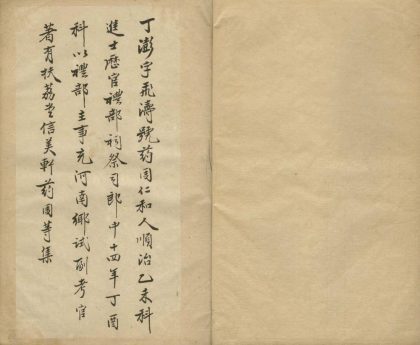 丁澎字飛濤號药園仁和人順治乙未科
進士歷官禮部祠祭司郎中十四年丁酉
科以禮部主事充河南鄉試副考官
著有扶荔堂信美軒药園等集